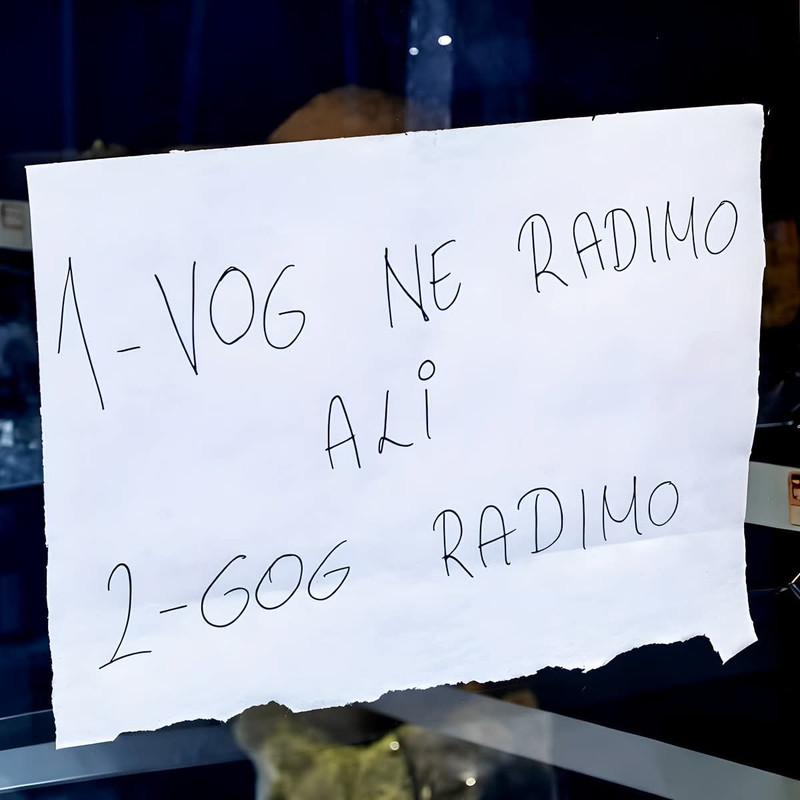 1-VOG NE RADIMO
ALI
2-GOG RADIMO